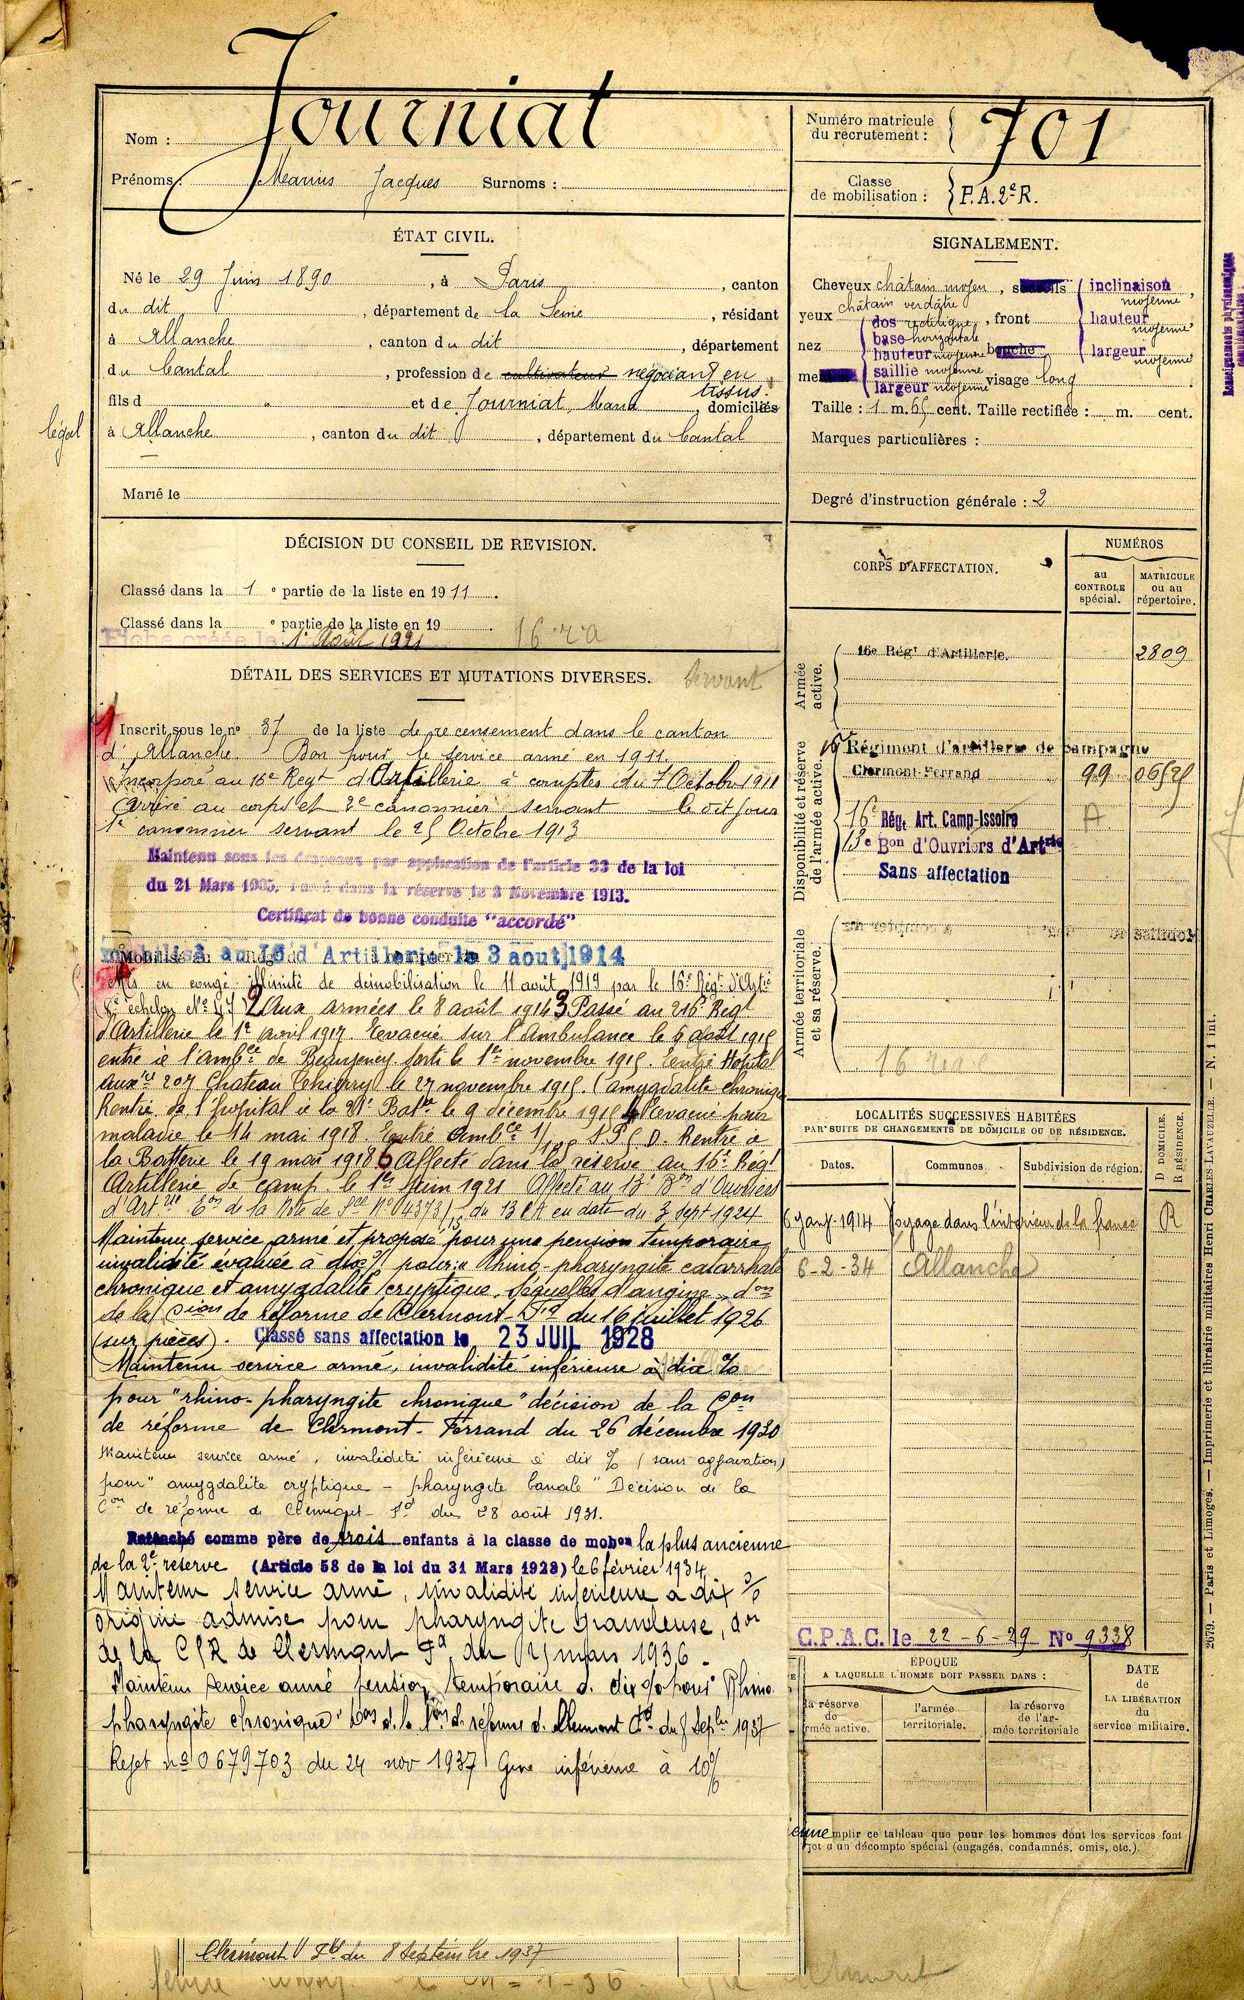 Nom : Journiat
Prénoms : Marius Jacques Surnoms :
Numéro matricule du recrutement : 701
Classe de mobilisation : P.A.2e R.
ÉTAT CIVIL.
Né le 29 Juin 1890, à Paris, canton
du dit, département de la Seine, résidant
à Allanche, canton du dit, département
du Cantal, profession de cultivateur négociant en
tissus.
fils d " et de Journiat, Maria domiciliés
légal
à Allanche, canton du dit, département du Cantal
Marié le
SIGNALEMENT.
Cheveux châtain moyen, sourcils
yeux châtain verdâtre, front
inclinaison moyenne
hauteur moyenne
largeur moyenne
nez
dos rectiligne
base horizontale
hauteur moyenne
saillie moyenne
largeur moyenne
bouche
visage long
Taille : 1 m. 65 cent. Taille rectifiée : m. cent.
Marques particulières :
Degré d'instruction générale : 2
Renseignements physionomiques
complémentaires :
DÉCISION DU CONSEIL DE REVISION.
Classé dans la 1e partie de la liste en 1911.
Classé dans la e partie de la liste en 19
Fiche créée le 1er Août 1921
16 ra
DÉTAIL DES SERVICES ET MUTATIONS DIVERSES.
Servant
Inscrit sous le no 37 de la liste de recensement dans le canton
d'Allanche Bon pour le service armé en 1911.
Incorporé au 16e Regt d'Artillerie à compter du 7 Octobre 1911
Arrivé au corps et 2e canonnier servant le dit jour
1er canonnier servant le 25 Octobre 1913
Maintenu sous les drapeaux par application de l'article 33 de la loi
du 21 Mars 1905. Passé dans la réserve le 8 Novembre 1913.
Certificat de bonne conduite "accordé"
mobilisé au 16 d'Artillerie le 3 aout 1914
Mis en congé illimité de démobilisation le 11 août 1919 par le 16e Régt d'Artie
(8e échelon No 47 2 Aux armées le 8 août 1914 3 Passé au 216e Regt
d'Artillerie le 1er avril 1917 Evacué sur l'Ambulance le 9 août 1915
entré à l'ambce de Beaugency sorti le 1er novembre 1915. Entré Hopital
auxre 207 Chateau Thierry le 27 novembre 1915. (amygdalite chronique
Rentré de l'hopital à la 21e Batie le 9 décembre 1915 Evacué pour
maladie le 14 mai 1918. Entré Ambce 1/ Rentré à
la Batterie le 19 mai 1918 6 Affecté dans la réserve au 16e Régt
Artillerie de camp. le 1er Juin 1921 Affecté au 13e Bon d'Ouvriers
d'Artie Eon de la Note de Sce No 04373/ du 13 CA en date du 3 sept 1924
Maintenu service armé et proposé pour une pension temporaire
invalidité évaluée à dix % pour: « Rhino-pharyngite catarrhale
chronique et amygdalite cryptique. Séquelles d'angine » don
de la Cion de réforme de Clermont-Fd du 16 juillet 1926
(sur pièces). Classé sans affectation le 23 JUIL 1928
Maintenu service armé, invalidité inférieure à dix %
pour "rhino-pharyngite chronique" décision de la Con
de réforme de Clermont-Ferrand du 26 décembre 1930
Maintenu service armé, invalidité inférieure à dix % (sans aggravation)
pour "amygdalite cryptique - pharyngite banale" Décision de la
Con de réforme de Clermont-Fd du 28 août 1931.
Rattaché comme père de trois enfants à la classe de mobon la plus ancienne
de la 2e réserve (Article 58 de la loi du 31 Mars 1928) le 6 février 1934
Maintenu service armé, invalidité inférieure à dix %
origine admise pour pharyngite granuleuse, don
de la C/R de Clermont Fd du mars 1936.
Maintenu service armé pension temporaire d. dix % pour Rhino
pharyngite chronique d. la Con d. réforme d. Clermont Fd du 8 Septbre 1937
Rejet no 0679703 du 24 nov 1937 Gêne inférieure à 10%
Clermont Fd du 8 Septembre 1937
CORPS D'AFFECTATION.
NUMÉROS
au CONTROLE spécial.
MATRICULE ou au répertoire.
Armée active.
16e Régt d'Artillerie. 2809
Disponibilité et réserve de l'armée active.
16 Régiment d'artillerie de campagne
Clermont-Ferrand 99
16e Régt Art. Camp-Issoire A
13e Bon d'Ouvriers d'Artrie
Sans affectation
Armée territoriale et sa réserve.
LOCALITÉS SUCCESSIVES HABITÉES
PAR SUITE DE CHANGEMENTS DE DOMICILE OU DE RÉSIDENCE.
Dates. Communes. Subdivision de région. D DOMICILE. R RÉSIDENCE.
6 janv. 1914 Voyage dans l'intérieur de la france R
6-2-34 Allanche
C.P.A.C. le 22-6-29 No 9338
ÉPOQUE
A LAQUELLE L'HOMME DOIT PASSER DANS :
DATE
de
LA LIBÉRATION
du
service militaire.
la réserve
de
rmée active.
l'armée
territoriale.
la réserve
de l'ar-
mée territoriale
emplir ce tableau que pour les hommes dont les services font
jet d'un décompte spécial (engagés, condamnés, omis, etc.).
2679. — Paris et Limoges. — Imprimerie et librairie militaires Henri CHARLES-LAVAUZELLE. — N. 1 int.